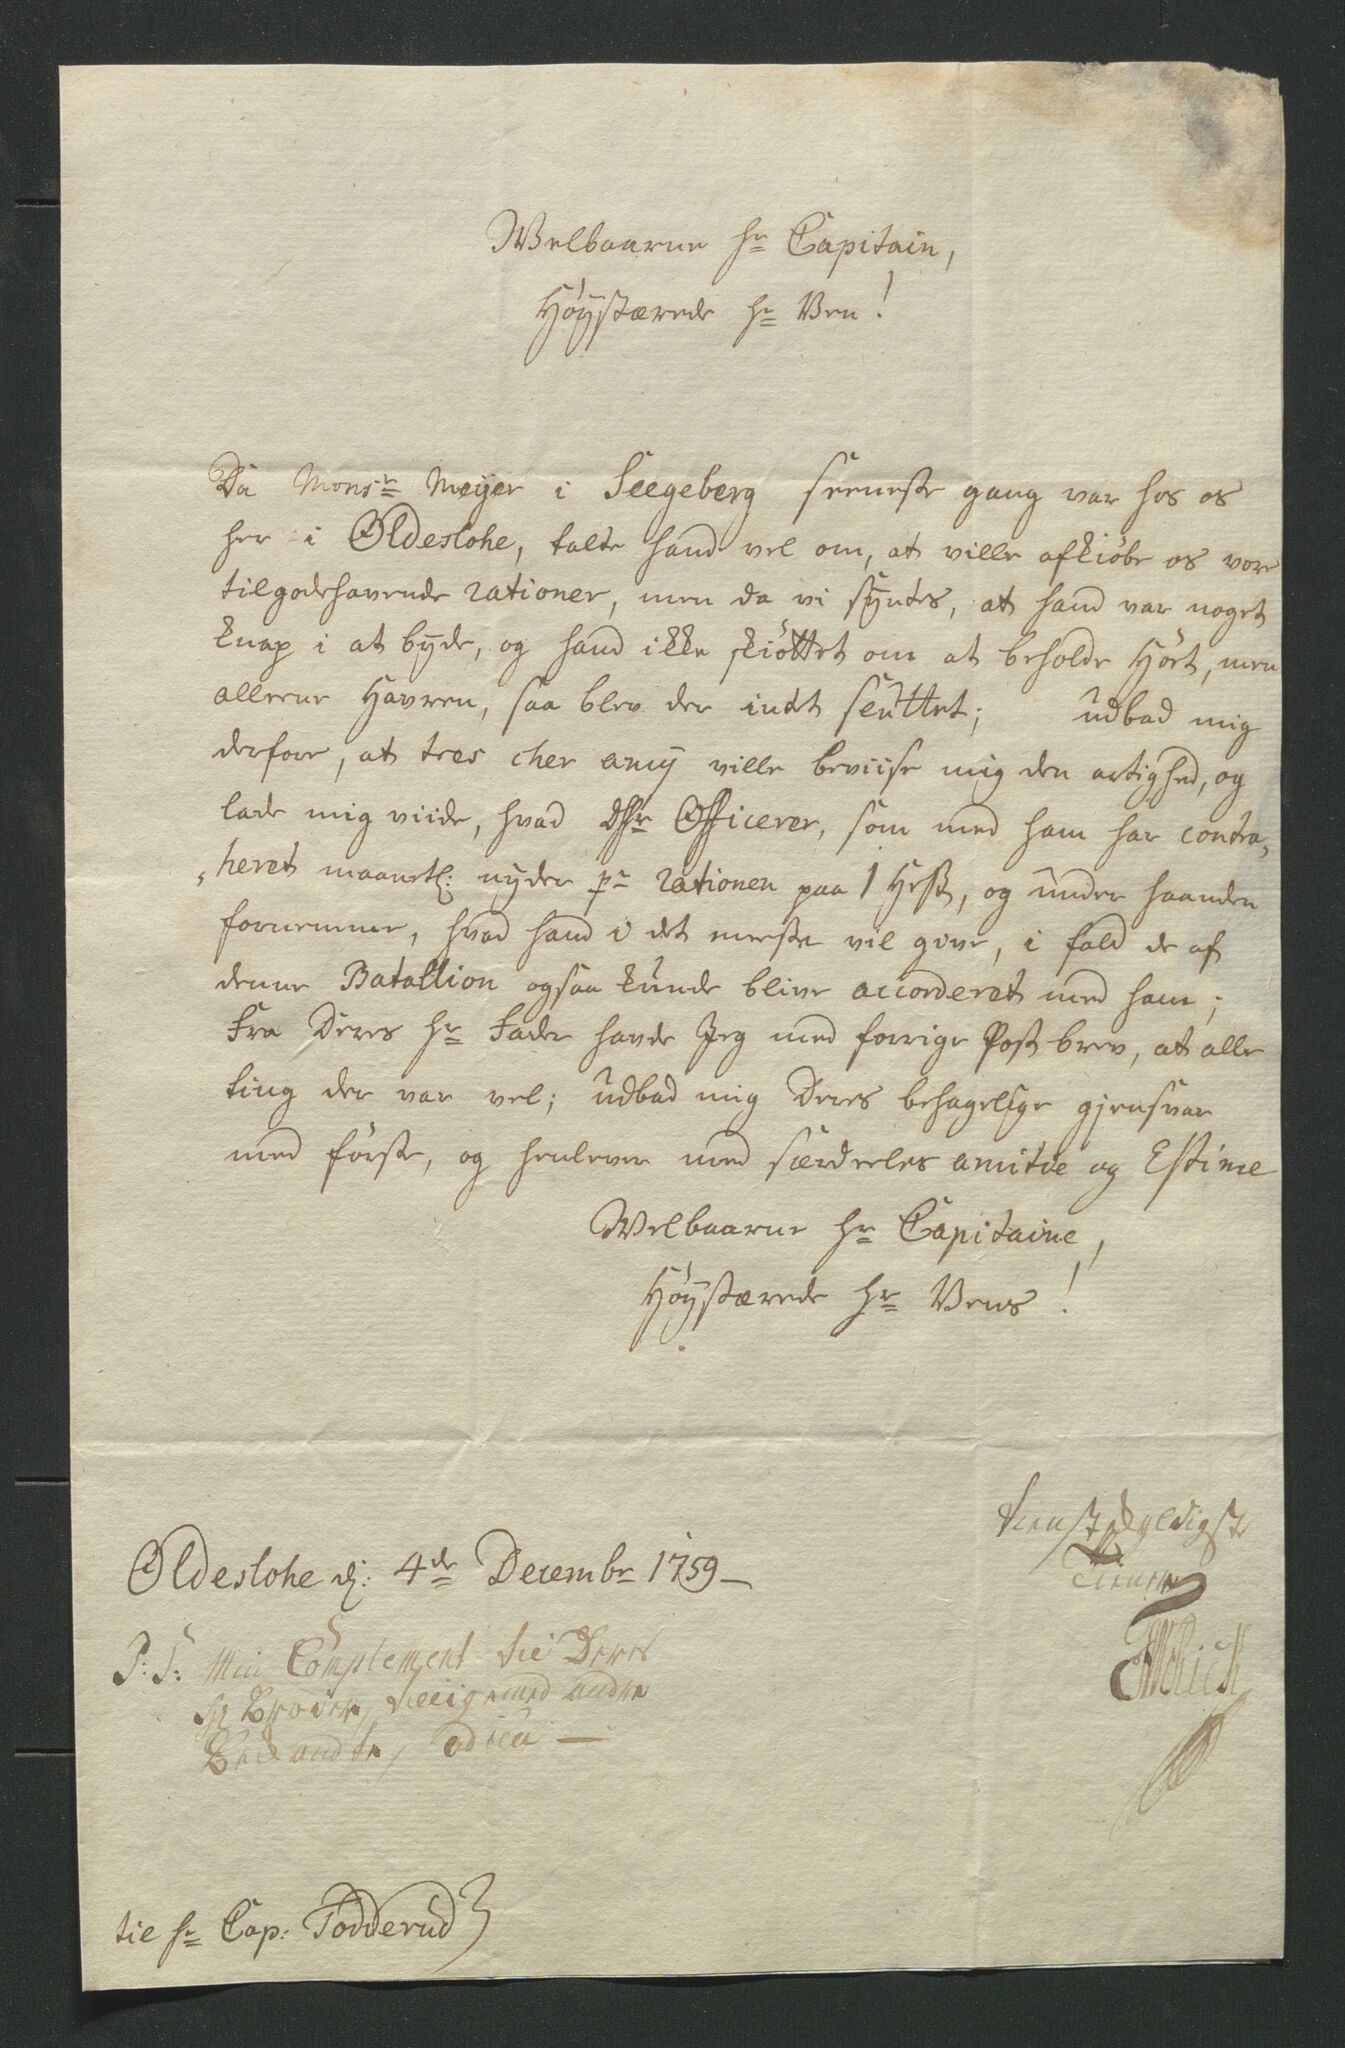 Welbaarne Hr Capitain,
Høystærede Hr Ven!
Da Monsr Meyer i Seegeberg seeneste gang var hos os
her i Oldeslohe, talte hand vel om, at ville afkiøbe os vore
tilgodehavende rationer, men da vi syntes, at hand var noget
knap i at byde, og hand ikke skiøttet om at beholde Höet, men
alleene Havren, saa blev der intet sluttet; udbad mig
derfore, at tres cher amy ville beviise mig den artighed, og
lade mig viide, hvad DHr Officerer, som med ham har contra,
,heret maanetl: nyder pr rationen paa 1 Hest, og under haanden
fornemme, hvad hand i det meeste vil give, i fald de af
denne Batallion ogsaa kunde blive accorderet med ham;
Fra Deres Hr Fader havde Jeg med forrige Post brev, at alle
ting der var vel; udbad mig Deres behagelige gjensvar
med første, og henlever med særdeeles amitie og Estime
Welbaarne Hr Capitaine,
Høystærede Hr Vens!
tienstskyldigste
Tienner
Oldeslohe d: 4de Decembr 1759
P: S: Min Complement til Deres
Hr Broder, tillige med andre
Bekandte, adieu
til Hr Cap: Todderud